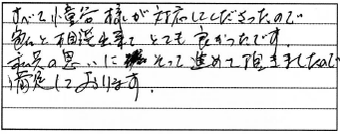 すべて憧谷様が対応してくださったので
色々と相談出来てとても良かったです。
家族の思いにそって進めて頂きましたので
満足しております。